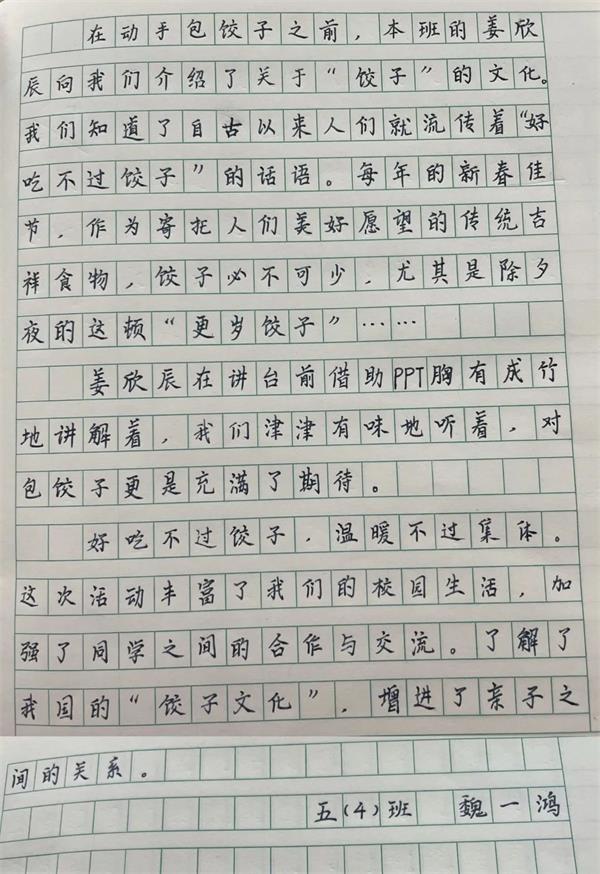 在动手包饺子之前，本班的姜欣
辰向我们介绍了关于“饺子”的文化。
我们知道了自古以来人们就流传着“好
吃不过饺子”的话语。每年的新春佳
节，作为寄托人们美好愿望的传统吉
祥食物，饺子必不可少，尤其是除夕
夜的这顿“更岁饺子”……
姜欣辰在讲台前借助PPT胸有成竹
地讲解着，我们津津有味地听着，对
包饺子更是充满了期待。
好吃不过饺子，温暖不过集体。
这次活动丰富了我们的校园生活，加
强了同学之间的合作与交流。了解了
我国的“饺子文化”，增进了亲子之
间的关系。
五(4)班 魏一鸿